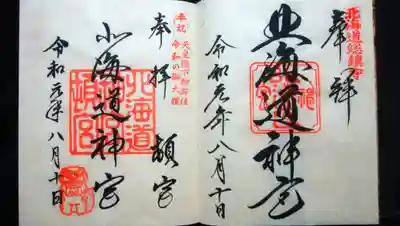 北海道総鎮守
奉拝
北海道神宮
令和元年八月十日
奉祝
天皇陛下御即位
令和の御大禮
奉拝
頓宮
北海道神宮
北海道
神宮
頓宮
令和元年八月十日